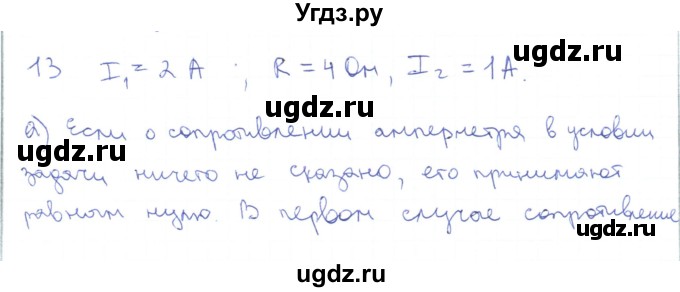 Угдз.ру
13 I₁ = 2 А ; R = 4 Ом, I₂ = 1 А.
ugdz.ru
ugdz.ru
а) Если о сопротивлении амперметра в условии
ugdz.ru
ugdz.ru
задачи ничего не сказано, его принимают
равным нулю. В первом случае сопротивление
ugdz.ru
ugdz.ru